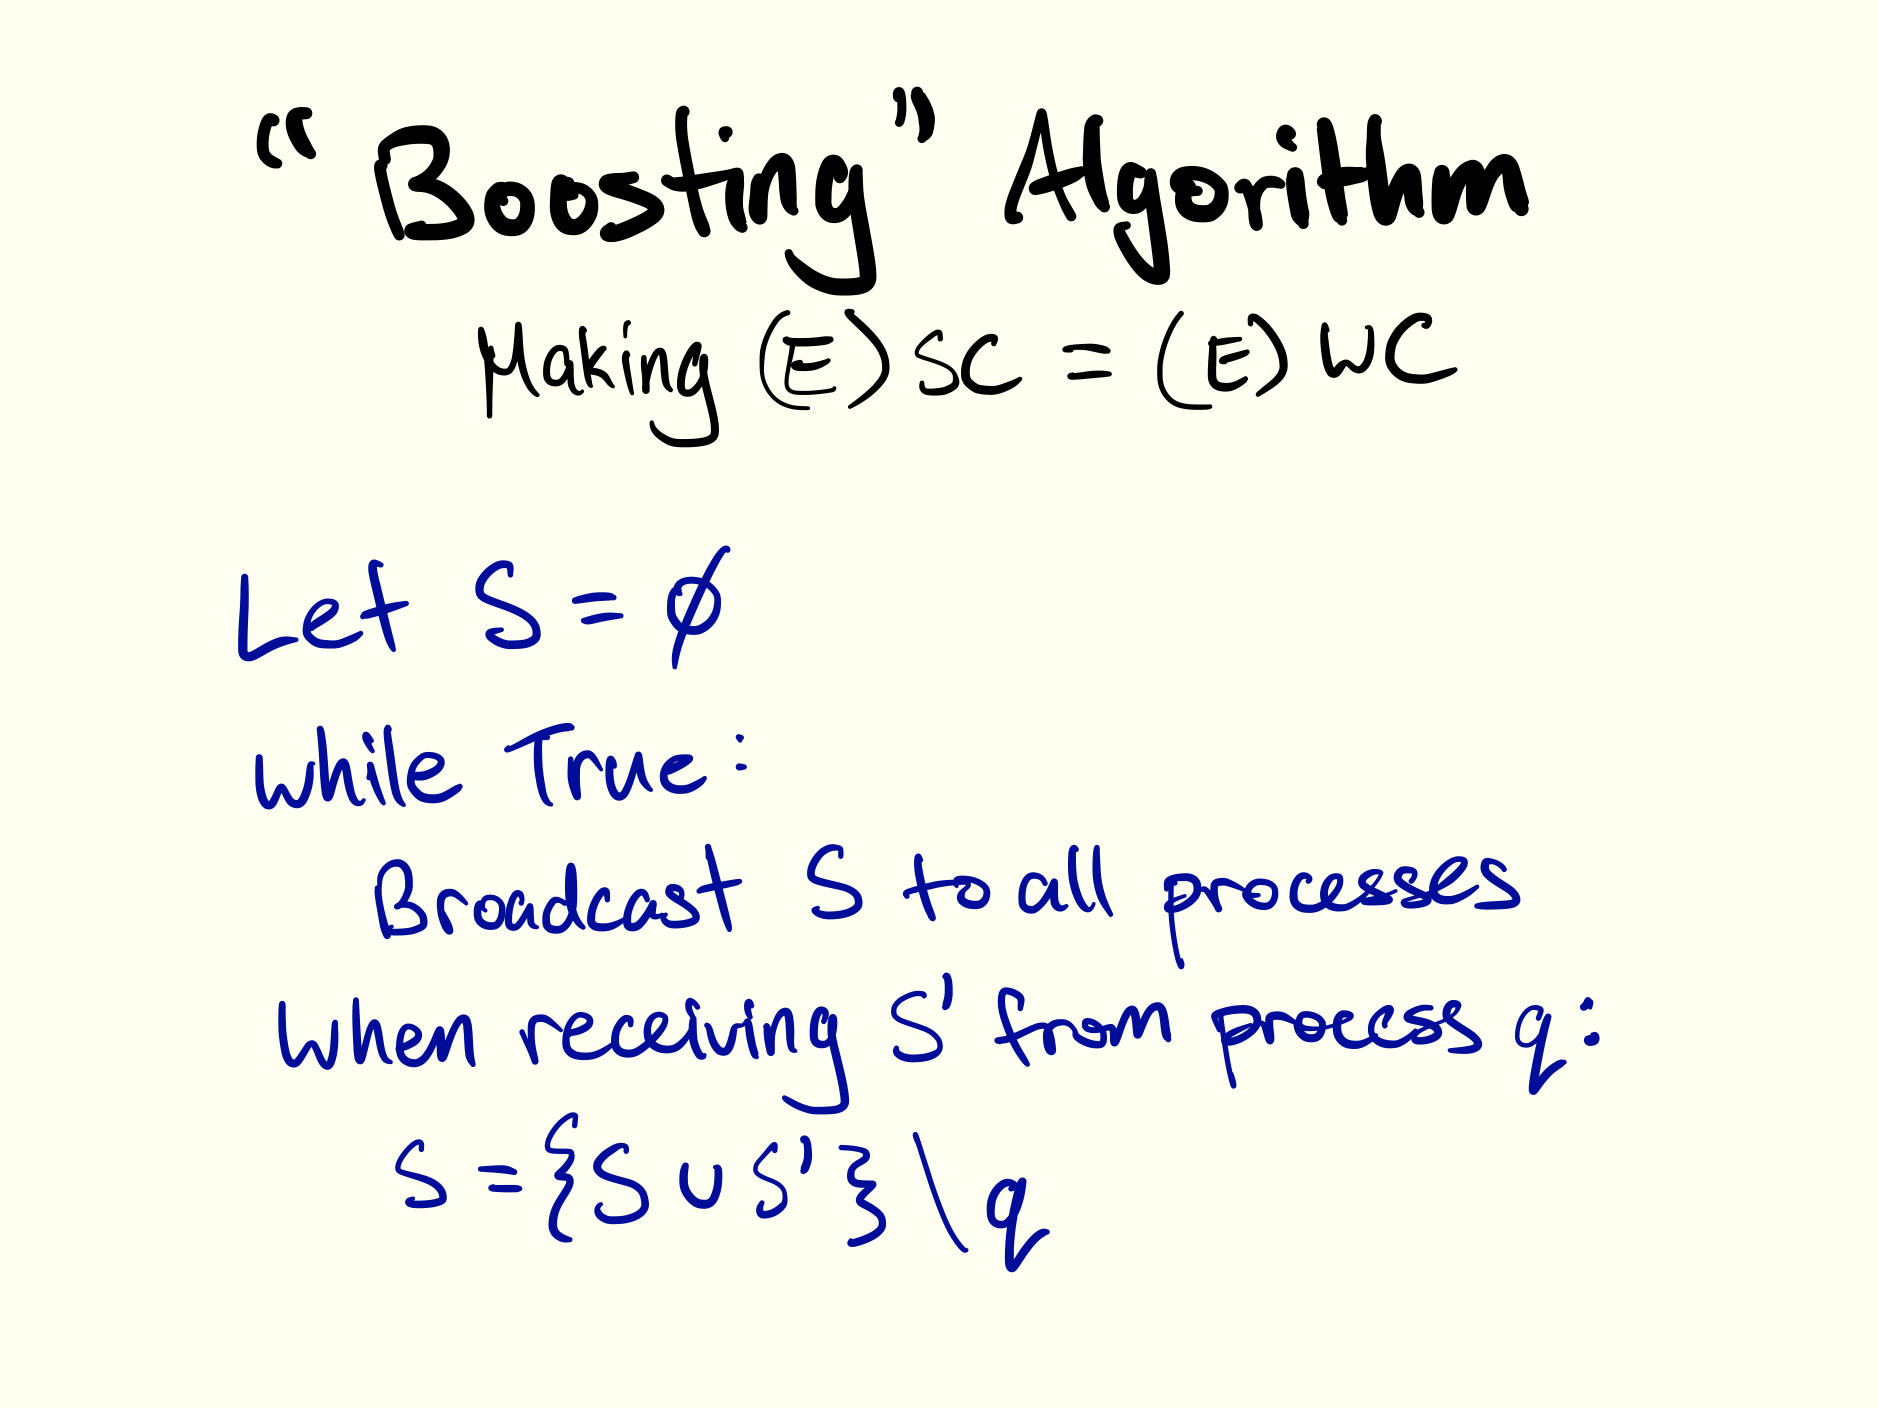 “Boosting” Algorithm
Making (E)SC = (E)WC
Let S = ∅
while True:
Broadcast S to all processes
When receiving S' from process q:
S = {S ∪ S'} \ q